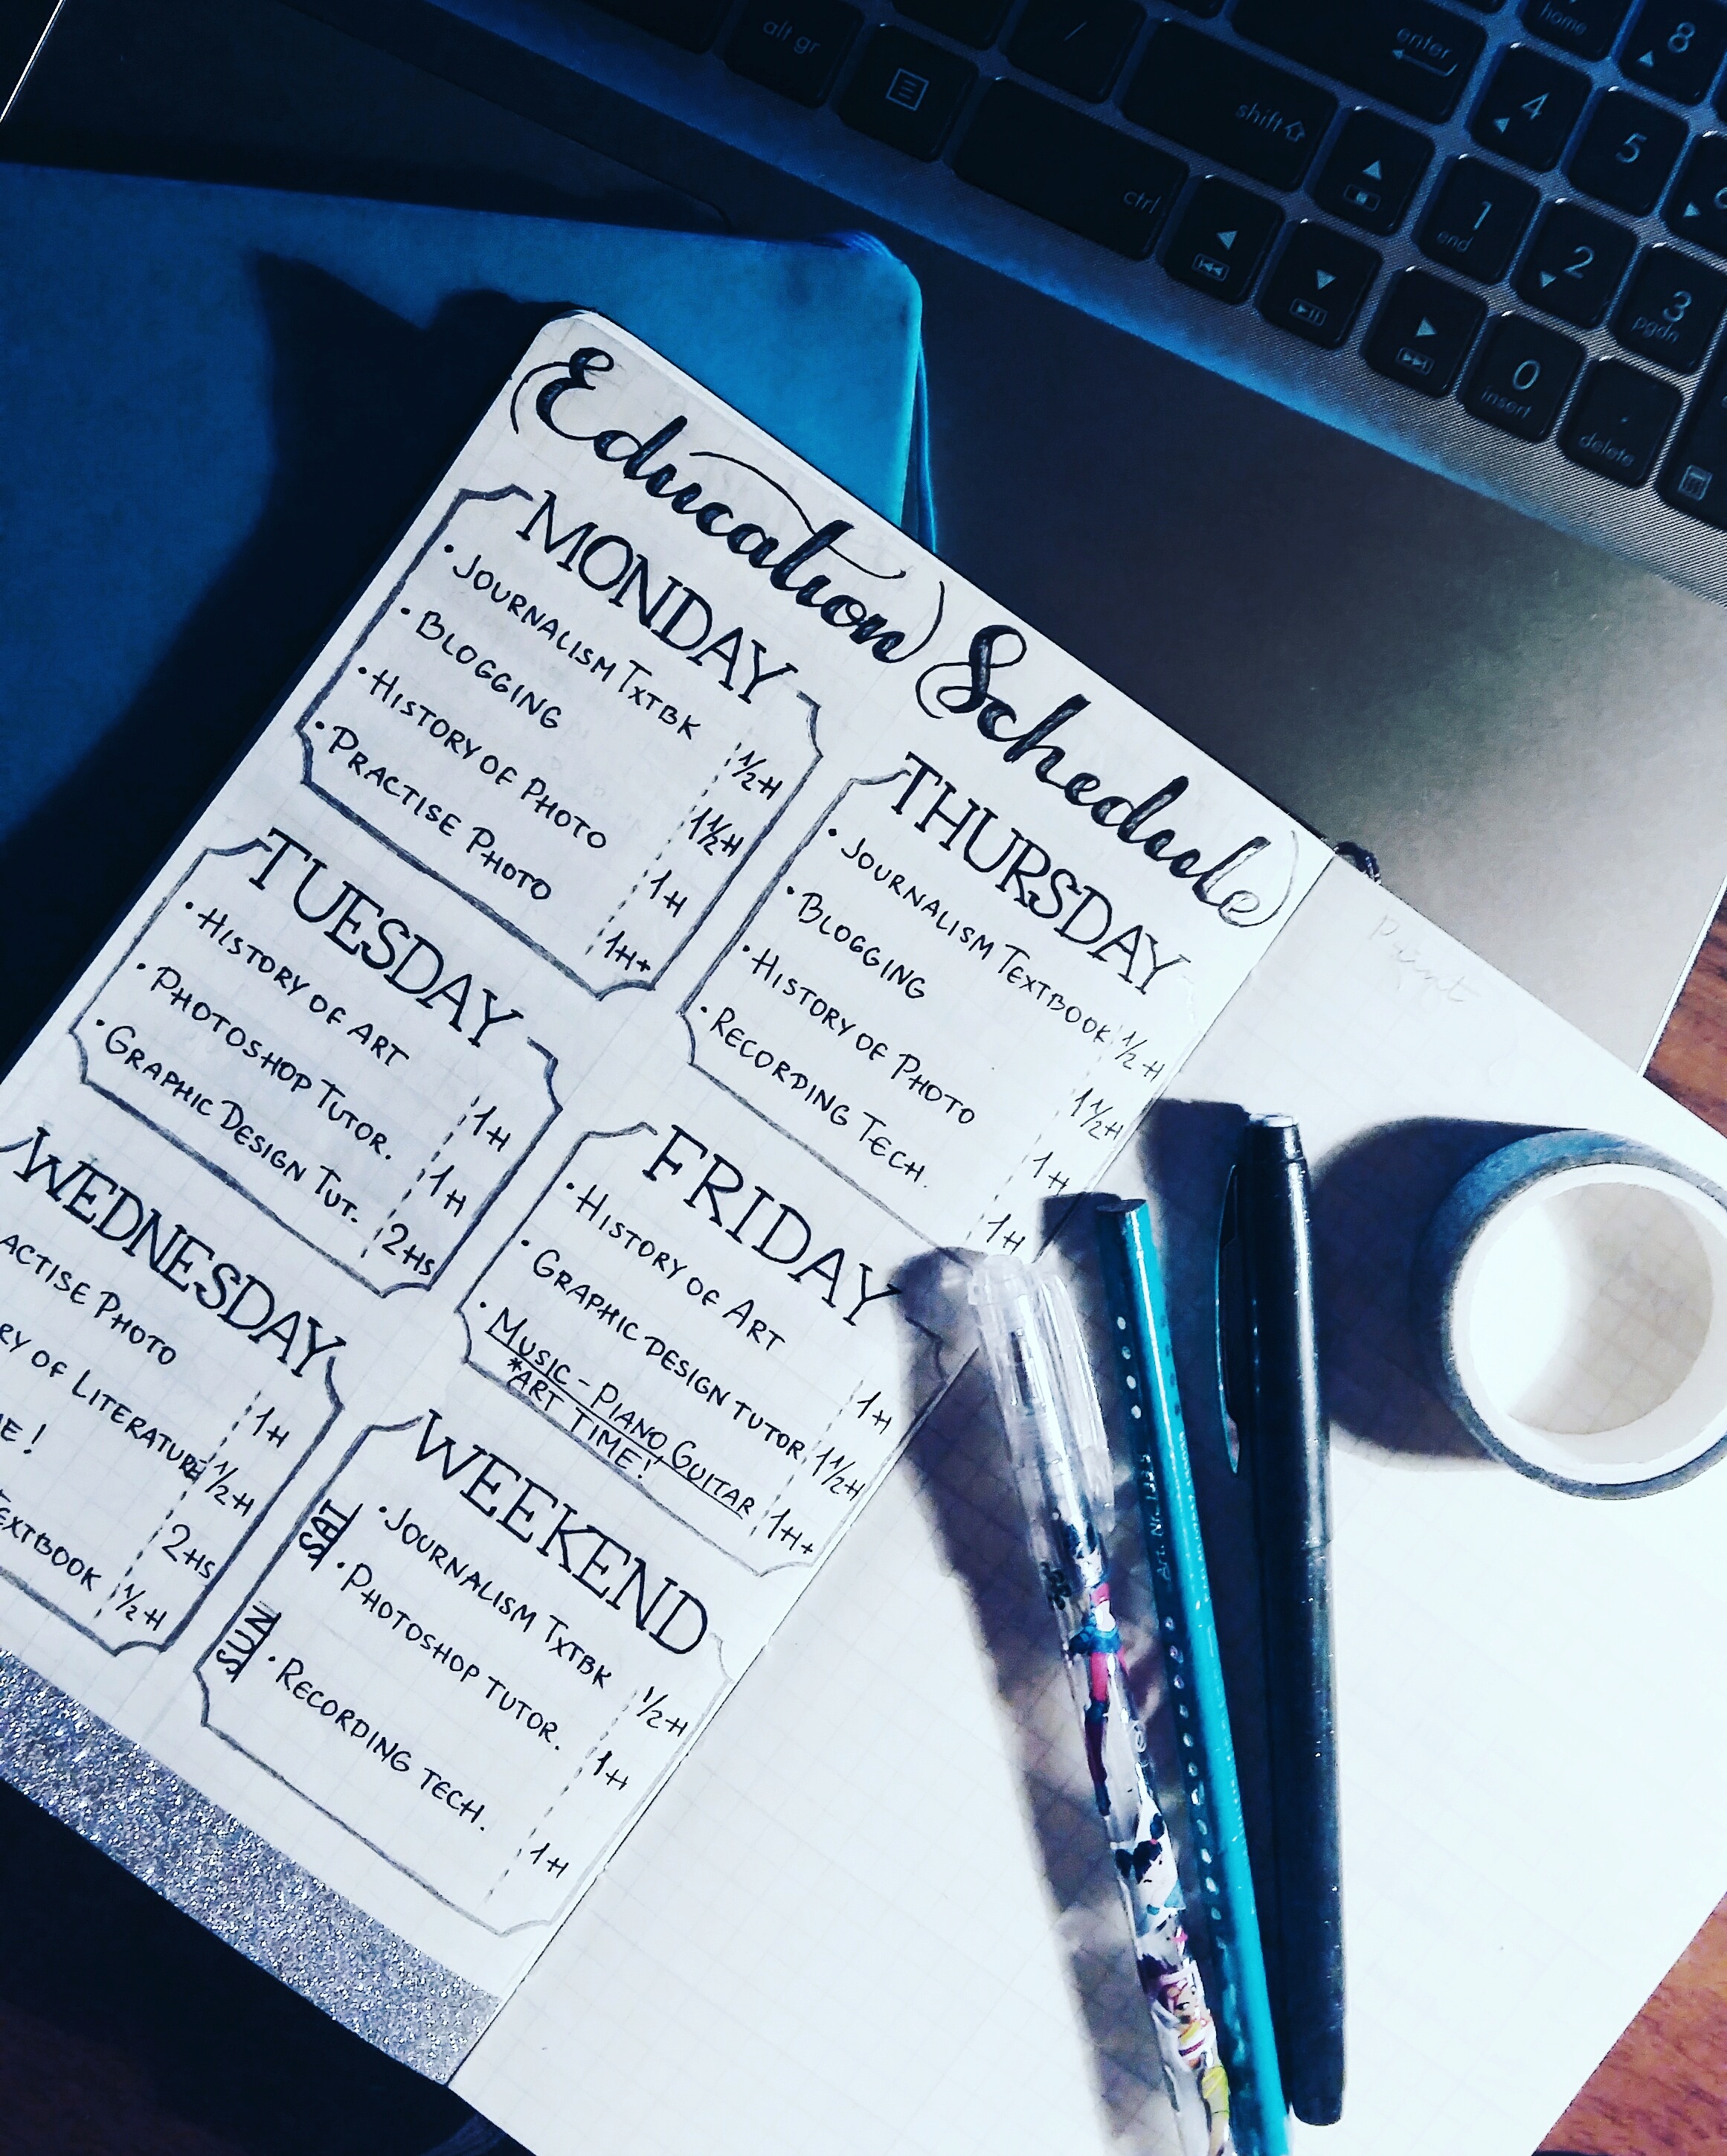 alt gr
/
enter
home
8
shift
4
5
ctrl
1
end
2
3
pgdn
0
insert
.
delete
Education Schedule
MONDAY
• JOURNALISM TXTBK 1/2H
• BLOGGING 1 1/2H
• HISTORY OF PHOTO 1H
• PRACTISE PHOTO 1H+
TUESDAY
• HISTORY OF ART 1H
• PHOTOSHOP TUTOR. 1H
• GRAPHIC DESIGN TUT. 2HS
WEDNESDAY
ACTISE PHOTO 1H
RY OF LITERATURE 1/2H
E! 2HS
EXTBOOK 1/2H
THURSDAY
• JOURNALISM TEXTBOOK 1/2H
• BLOGGING 1 1/2H
• HISTORY OF PHOTO 1H
• RECORDING TECH. 1H
FRIDAY
• HISTORY OF ART 1H
• GRAPHIC DESIGN TUTOR 1 1/2H
• MUSIC - PIANO, GUITAR 1H+
*ART TIME!
WEEKEND
SAT
• JOURNALISM TXTBK 1/2H
• PHOTOSHOP TUTOR. 1H
SUN
• RECORDING TECH. 1H